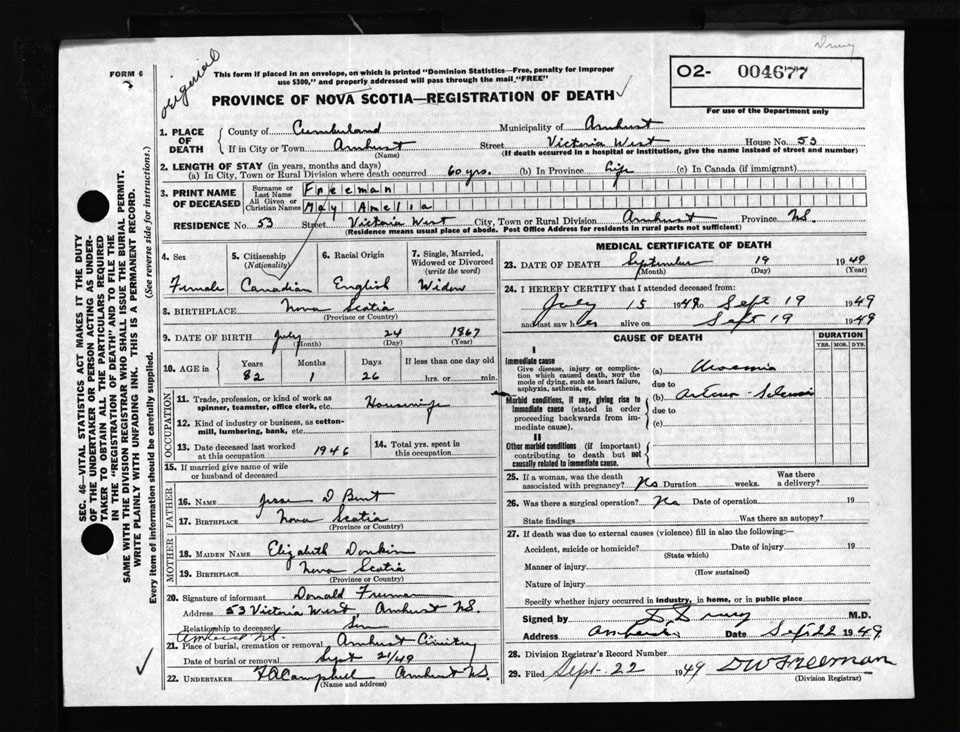 Drury
FORM 6
original
This form if placed in an envelope, on which is printed "Dominion Statistics—Free, penalty for improper
use $300," and properly addressed will pass through the mail "FREE"
O2- 004677
For use of the Department only
PROVINCE OF NOVA SCOTIA—REGISTRATION OF DEATH
1. PLACE OF DEATH
County of Cumberland Municipality of Amherst
If in City or Town Amherst Street Victoria West House No. 53
(Name) (If death occurred in a hospital or institution, give the name instead of street and number)
2. LENGTH OF STAY (in years, months and days)
(a) In City, Town or Rural Division where death occurred 60 yrs. (b) In Province Life (c) In Canada (if immigrant)
3. PRINT NAME OF DECEASED
Surname or Last Name Freeman
All Given or Christian Names May Amelia
RESIDENCE No. 53 Street Victoria West City, Town or Rural Division Amherst Province N.S.
(Residence means usual place of abode. Post Office Address for residents in rural parts not sufficient)
4. Sex
Female
5. Citizenship
(Nationality)
Canadian
6. Racial Origin
English
7. Single, Married,
Widowed or Divorced
(write the word)
Widow
8. BIRTHPLACE Nova Scotia
(Province or Country)
9. DATE OF BIRTH July 24 1867
(Month) (Day) (Year)
10. AGE in Years Months Days If less than one day old
82 1 26 hrs. or min.
OCCUPATION
11. Trade, profession, or kind of work as
spinner, teamster, office clerk, etc. Housewife
12. Kind of industry or business, as cotton-
mill, lumbering, bank, etc.
13. Date deceased last worked
at this occupation 1946
14. Total yrs. spent in
this occupation
15. If married give name of wife
or husband of deceased
FATHER
16. NAME Jesse D Bent
17. BIRTHPLACE Nova Scotia
(Province or Country)
MOTHER
18. MAIDEN NAME Elizabeth Donkin
19. BIRTHPLACE Nova Scotia
(Province or Country)
20. Signature of informant Donald Freeman
Address 53 Victoria West, Amherst N.S.
Relationship to deceased Son
Amherst N.S.
21. Place of burial, cremation or removal Amherst Cemetery
Date of burial or removal Sept 21/49
22. UNDERTAKER F A Campbell Amherst N.S.
(Name and address)
MEDICAL CERTIFICATE OF DEATH
23. DATE OF DEATH September 19 1949
(Month) (Day) (Year)
24. I HEREBY CERTIFY that I attended deceased from:
July 15 1949 to Sept 19 1949
and last saw her alive on Sept 19 1949
CAUSE OF DEATH
DURATION
YRS. MOS. DYS.
I
Immediate cause
Give disease, injury or complica-
tion which caused death, NOT the
mode of dying, such as heart failure,
asphyxia, asthenia, etc.
(a) Uraemia
due to
Morbid conditions, if any, giving rise to
immediate cause (stated in order
proceeding backwards from im-
mediate cause).
(b) Arterio-Sclerosis
due to
(c)
II
Other morbid conditions (if important)
contributing to death but not
causally related to immediate cause.
25. If a woman, was the death
associated with pregnancy? No Duration weeks. Was there
a delivery?
26. Was there a surgical operation? No Date of operation 19
State findings Was there an autopsy?
27. If death was due to external causes (violence) fill in also the following:—
Accident, suicide or homicide? Date of injury 19
(State which)
Manner of injury
(How sustained)
Nature of injury
Specify whether injury occurred in industry, in home, or in public place
Signed by D Drury M.D.
Address Amherst Date Sept 22 1949
28. Division Registrar's Record Number
29. Filed Sept. 22 1949 DW Freeman
(Division Registrar)
SEC. 46—VITAL STATISTICS ACT MAKES IT THE DUTY
OF THE UNDERTAKER OR PERSON ACTING AS UNDER-
TAKER TO OBTAIN ALL THE PARTICULARS REQUIRED
IN THE "REGISTRATION OF DEATH" AND TO FILE THE
SAME WITH THE DIVISION REGISTRAR WHO SHALL ISSUE THE BURIAL PERMIT.
WRITE PLAINLY WITH UNFADING INK. THIS IS A PERMANENT RECORD.
Every item of information should be carefully supplied. (See reverse side for instructions.)